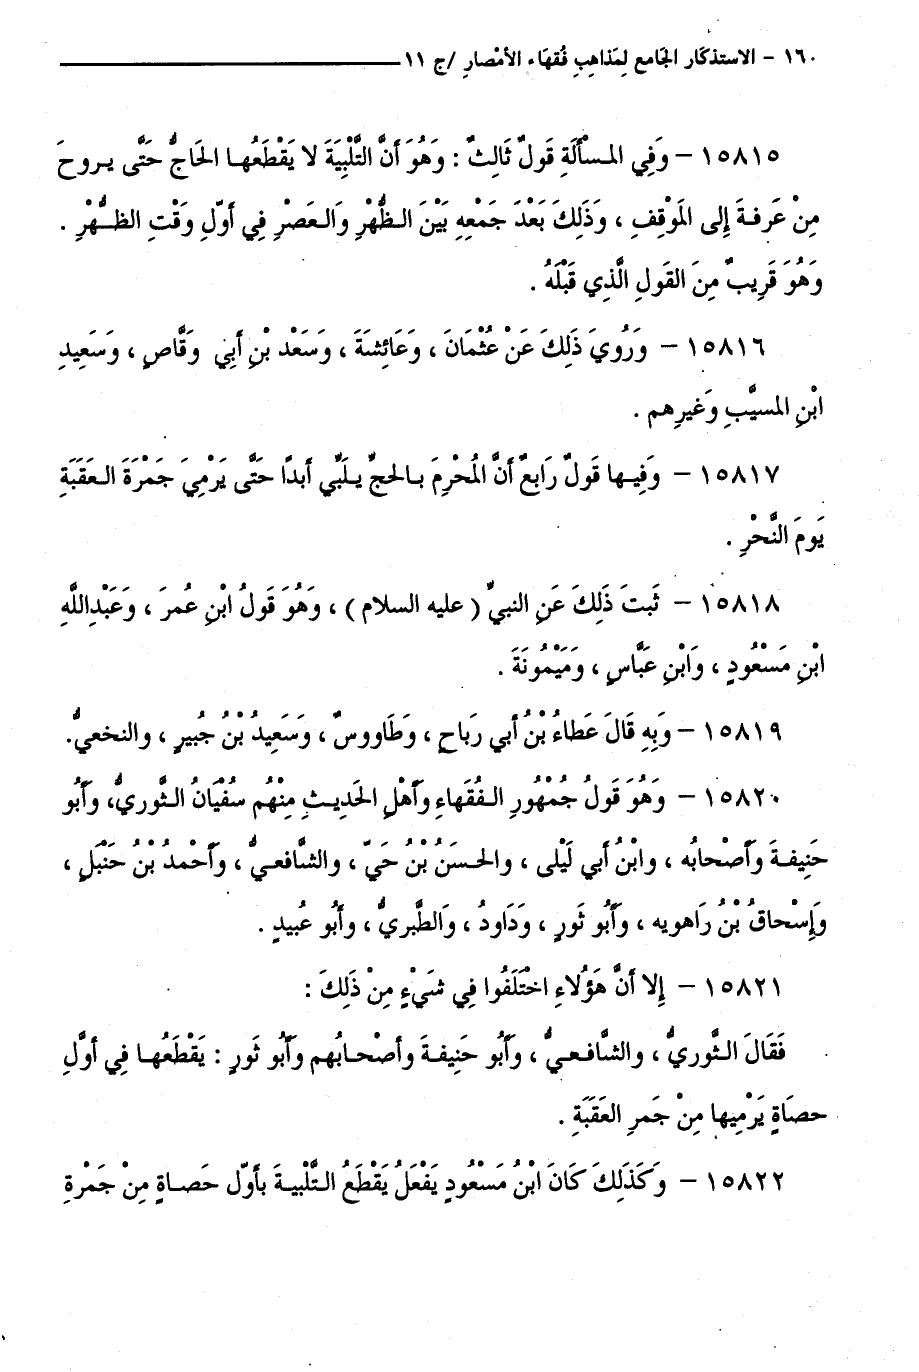 ١٦٠ - الاستذكار الجَامع لِمَذاهِبِ فُقهَاء الأمْصارِ /ج ١١
١٥٨١٥ - وَفِي المسأْلَةِ قَولٌ ثَالِثٌ : وَهُوَ أَنَّ التَّلْبِيَةَ لا يَقْطَعُها الحَاجُّ حَتَّى يروحَ
مِنْ عَرفةَ إِلى المَوْقِفِ ، وَذَلِكَ بَعْدَ جَمْعِهِ بَيْنَ الظُّهْرِ وَالعَصْرِ فِي أَوَّلِ وَقْتِ الظُّهْرِ .
وَهُوَ قَرِيبٌ مِنَ القَولِ الَّذِي قَبْلَهُ .
١٥٨١٦ - وَرُوِيَ ذَلِكَ عَنْ عُثْمَانَ ، وَعَائِشَةَ ، وَسَعْد بْنِ أَبِي وَقَّاصٍ ، وَسَعِيدِ
ابْنِ المسيَّبِ وَغيرِهم .
١٥٨١٧ - وَفِيها قَولٌ رَابِعٌ أَنَّ المُحْرِمَ بالحجِّ يلَبِّي أبدًا حَتَّى يَرْمِيَ جَمْرَةَ العَقَبَةِ
يَومَ النَّحْرِ .
١٥٨١٨ - ثَبتَ ذَلِكَ عَنِ النبيِّ ( عليه السلام ) ، وَهُوَ قَولُ ابْنِ عُمرَ ، وَعَبْدِاللَّهِ
ابْنِ مَسْعُودٍ ، وَابْنِ عَبَّاسٍ ، وَمَيْمُونَةَ .
١٥٨١٩ - وَبِهِ قَالَ عَطاءُ بْنُ أَبي رَباحٍ ، وَطَاووسٌ ، وَسَعِيدُ بْنُ جُبيرٍ ، والنخعيُّ.
١٥٨٢٠ - وَهُوَ قَولُ جُمْهُورِ الفُقَهاءِ وأَهْلِ الحَديثِ مِنْهُم سفْيَانُ الثَّوريُّ، وأَبُو
حَنِيفةَ وَأَصْحابُه ، وابْنُ أبي لَيْلى ، والحسَنُ بْنُ حَيّ ، والشَّافعيُّ ، وأَحْمدُ بْنُ حَنْبَلٍ ،
وَإِسْحاقُ بْنُ رَاهويه ، وَأَبُو ثَورٍ ، وَدَاودُ ، وَالطَّبريُّ ، وأَبُو عُبيدٍ .
١٥٨٢١ - إِلا أَنَّ هَؤُلاءِ اخْتَلَفُوا فِي شَيْءٍ مِنْ ذَلِكَ :
فَقَالَ الثَّوريُّ ، والشَّافعيُّ ، وَأَبُو حَنِيفةَ وأصْحابُهم وأَبُو ثَورٍ : يَقْطَعُها فِي أَوَّلِ
حصَاةٍ يَرْمِيها مِنْ جَمرِ العَقَبَةِ .
١٥٨٢٢ - وَكَذَلِكَ كَانَ ابْنُ مَسْعُودٍ يَفْعَلُ يَقْطَعُ التَّلْبيةَ بأَوّل حَصاةٍ مِنْ جَمْرةِ